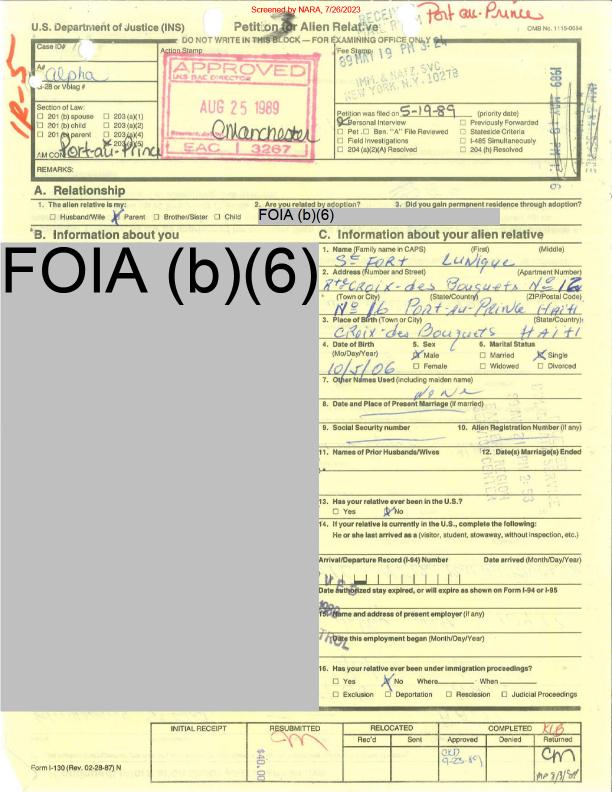 Screened by NARA, 7/26/2023
U.S. Department of Justice (INS) Petition for Alien Relative OMB No. 1115-0054
Port-au-Prince
DO NOT WRITE IN THIS BLOCK — FOR EXAMINING OFFICE ONLY
Case ID#
Action Stamp
Fee Stamp
A#
alpha
G-28 or Volag #
APPROVED
AUG 25 1989
Manchester
EAC 3267
RECEIVED
89 MAY 19 PM 3:24
IMM. & NATZ. SVC.
NEW YORK, N.Y. 10278
IR-5
Section of Law:
☐ 201 (b) spouse ☐ 203 (a)(1)
☐ 201 (b) child ☐ 203 (a)(2)
☐ 201 (b) parent ☐ 203 (a)(4)
☐ 203 (a)(5)
AM CON:
Port-au-Prince
Petition was filed on 5-19-89 (priority date)
☒ Personal Interview ☐ Previously Forwarded
☐ Pet. ☐ Ben. "A" File Reviewed ☐ Stateside Criteria
☐ Field Investigations ☐ I-485 Simultaneously
☐ 204 (a)(2)(A) Resolved ☐ 204 (h) Resolved
REMARKS:
A. Relationship
1. The alien relative is my: 2. Are you related by adoption? 3. Did you gain permanent residence through adoption?
☐ Husband/Wife ☒ Parent ☐ Brother/Sister ☐ Child FOIA (b)(6)
B. Information about you
FOIA (b)(6)
C. Information about your alien relative
1. Name (Family name in CAPS) (First) (Middle)
St FORT Lunique
2. Address (Number and Street) (Apartment Number)
Rte Croix-des Bouquets No 16
(Town or City) (State/Country) (ZIP/Postal Code)
No 16 Port-au-Prince Haiti
3. Place of Birth (Town or City) (State/Country)
Croix-des Bouquets HAITI
4. Date of Birth 5. Sex 6. Marital Status
(Mo/Day/Year) ☒ Male ☐ Married ☒ Single
10/5/06 ☐ Female ☐ Widowed ☐ Divorced
7. Other Names Used (including maiden name)
None
8. Date and Place of Present Marriage (if married)
9. Social Security number 10. Alien Registration Number (if any)
11. Names of Prior Husbands/Wives 12. Date(s) Marriage(s) Ended
13. Has your relative ever been in the U.S.?
☐ Yes ☒ No
14. If your relative is currently in the U.S., complete the following:
He or she last arrived as a (visitor, student, stowaway, without inspection, etc.)
Arrival/Departure Record (I-94) Number Date arrived (Month/Day/Year)
Date authorized stay expired, or will expire as shown on Form I-94 or I-95
15. Name and address of present employer (if any)
Date this employment began (Month/Day/Year)
16. Has your relative ever been under immigration proceedings?
☐ Yes ☒ No Where When
☐ Exclusion ☐ Deportation ☐ Rescission ☐ Judicial Proceedings
INITIAL RECEIPT RESUBMITTED RELOCATED COMPLETED KLB
Rec'd Sent Approved Denied Returned
cm
$40.00
9-23-89
cm
Form I-130 (Rev. 02-28-87) N